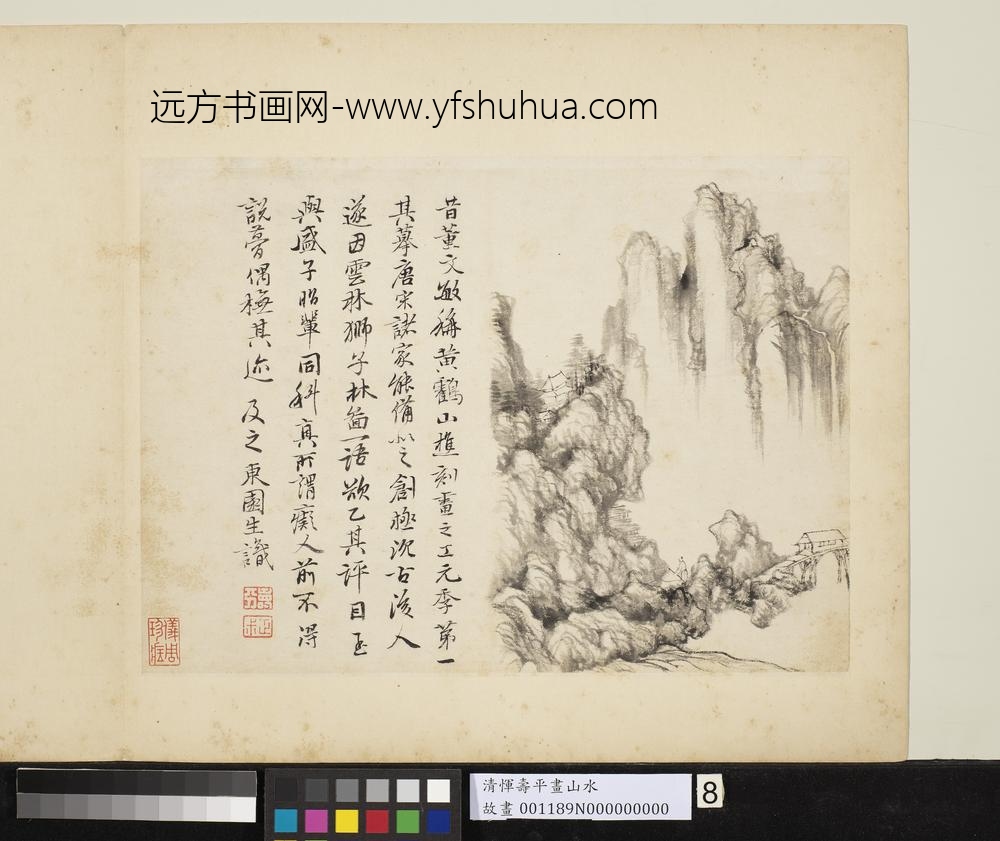 远方书画网-www.yfshuhua.com
昔董文敏稱黄鶴山樵刻畫之工元季第一
其摹唐宋諸家能備之創極沉古後人
遂因雲林獅子林圖一語欲乙其評目至
與盛子昭輩同科真所謂癡人前不得
說夢偶橅其迹 及之 東園生識
儀周珍藏
清惲壽平畫山水
故畫 001189N000000000
8